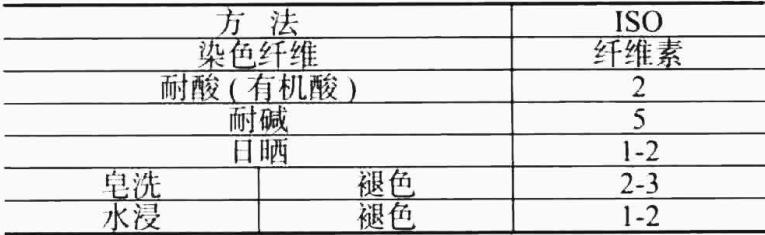 方 法 ISO
染色纤维 纤维素
耐酸 ( 有机酸 ) 2
耐碱 5
日晒 1-2
皂洗 褪色 2-3
水浸 褪色 1-2